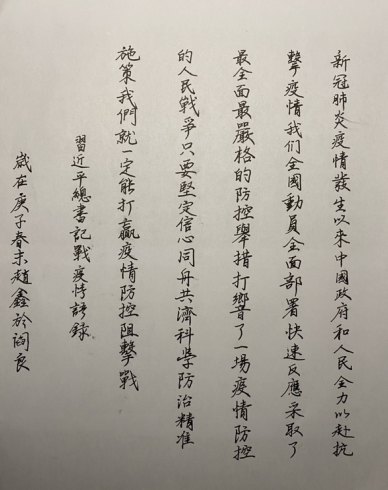 新冠肺炎疫情發生以來中國政府和人民全力以赴抗
擊疫情我们全國動員全面部署快速反應采取了
最全面最嚴格的防控舉措打響了一場疫情防控
的人民戰爭只要堅定信心同舟共濟科學防治精准
施策我們就一定能打贏疫情防控阻擊戰
習近平總書記戰疫情語錄
歲在庚子春末趙鑫於阎良